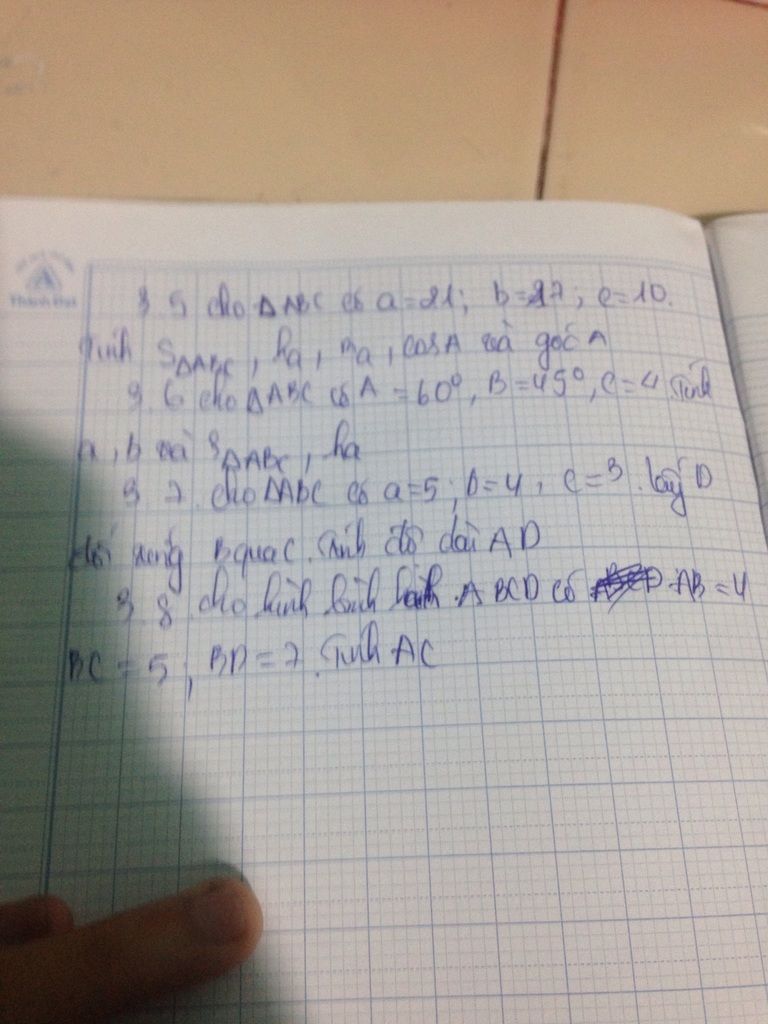 3.5 cho ΔABC có a=21; b=17; c=10.
Tính SΔABC, ha, ma, cosA và góc A
3.6 cho ΔABC có A=60°, B=45°, c=4 tính
a, b và SΔABC, ha
3.7. cho ΔABC có a=5; b=4, c=3. lấy D
đối xứng B qua C. Tính độ dài AD
3.8. cho hình bình hành ABCD có AB=4
BC=5; BD=7. Tính AC